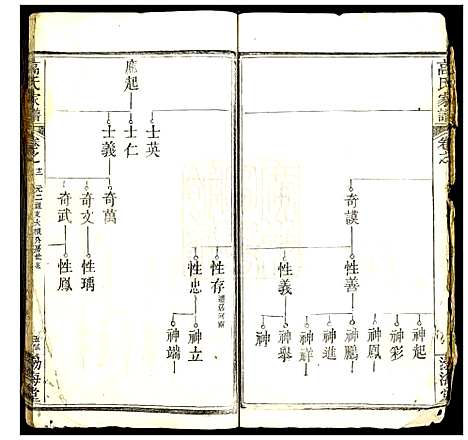 高氏家譜
卷之
奇謨
性善
性義
神起
神彩
神鳳
神鵬
神祥
神進
神舉
神
性存
遷居河南
性忠
神立
神端
渤海堂
應起
士英
士仁
士義
奇萬
奇文
奇武
性瑀
性鳳
高氏家譜
卷之
渤海堂